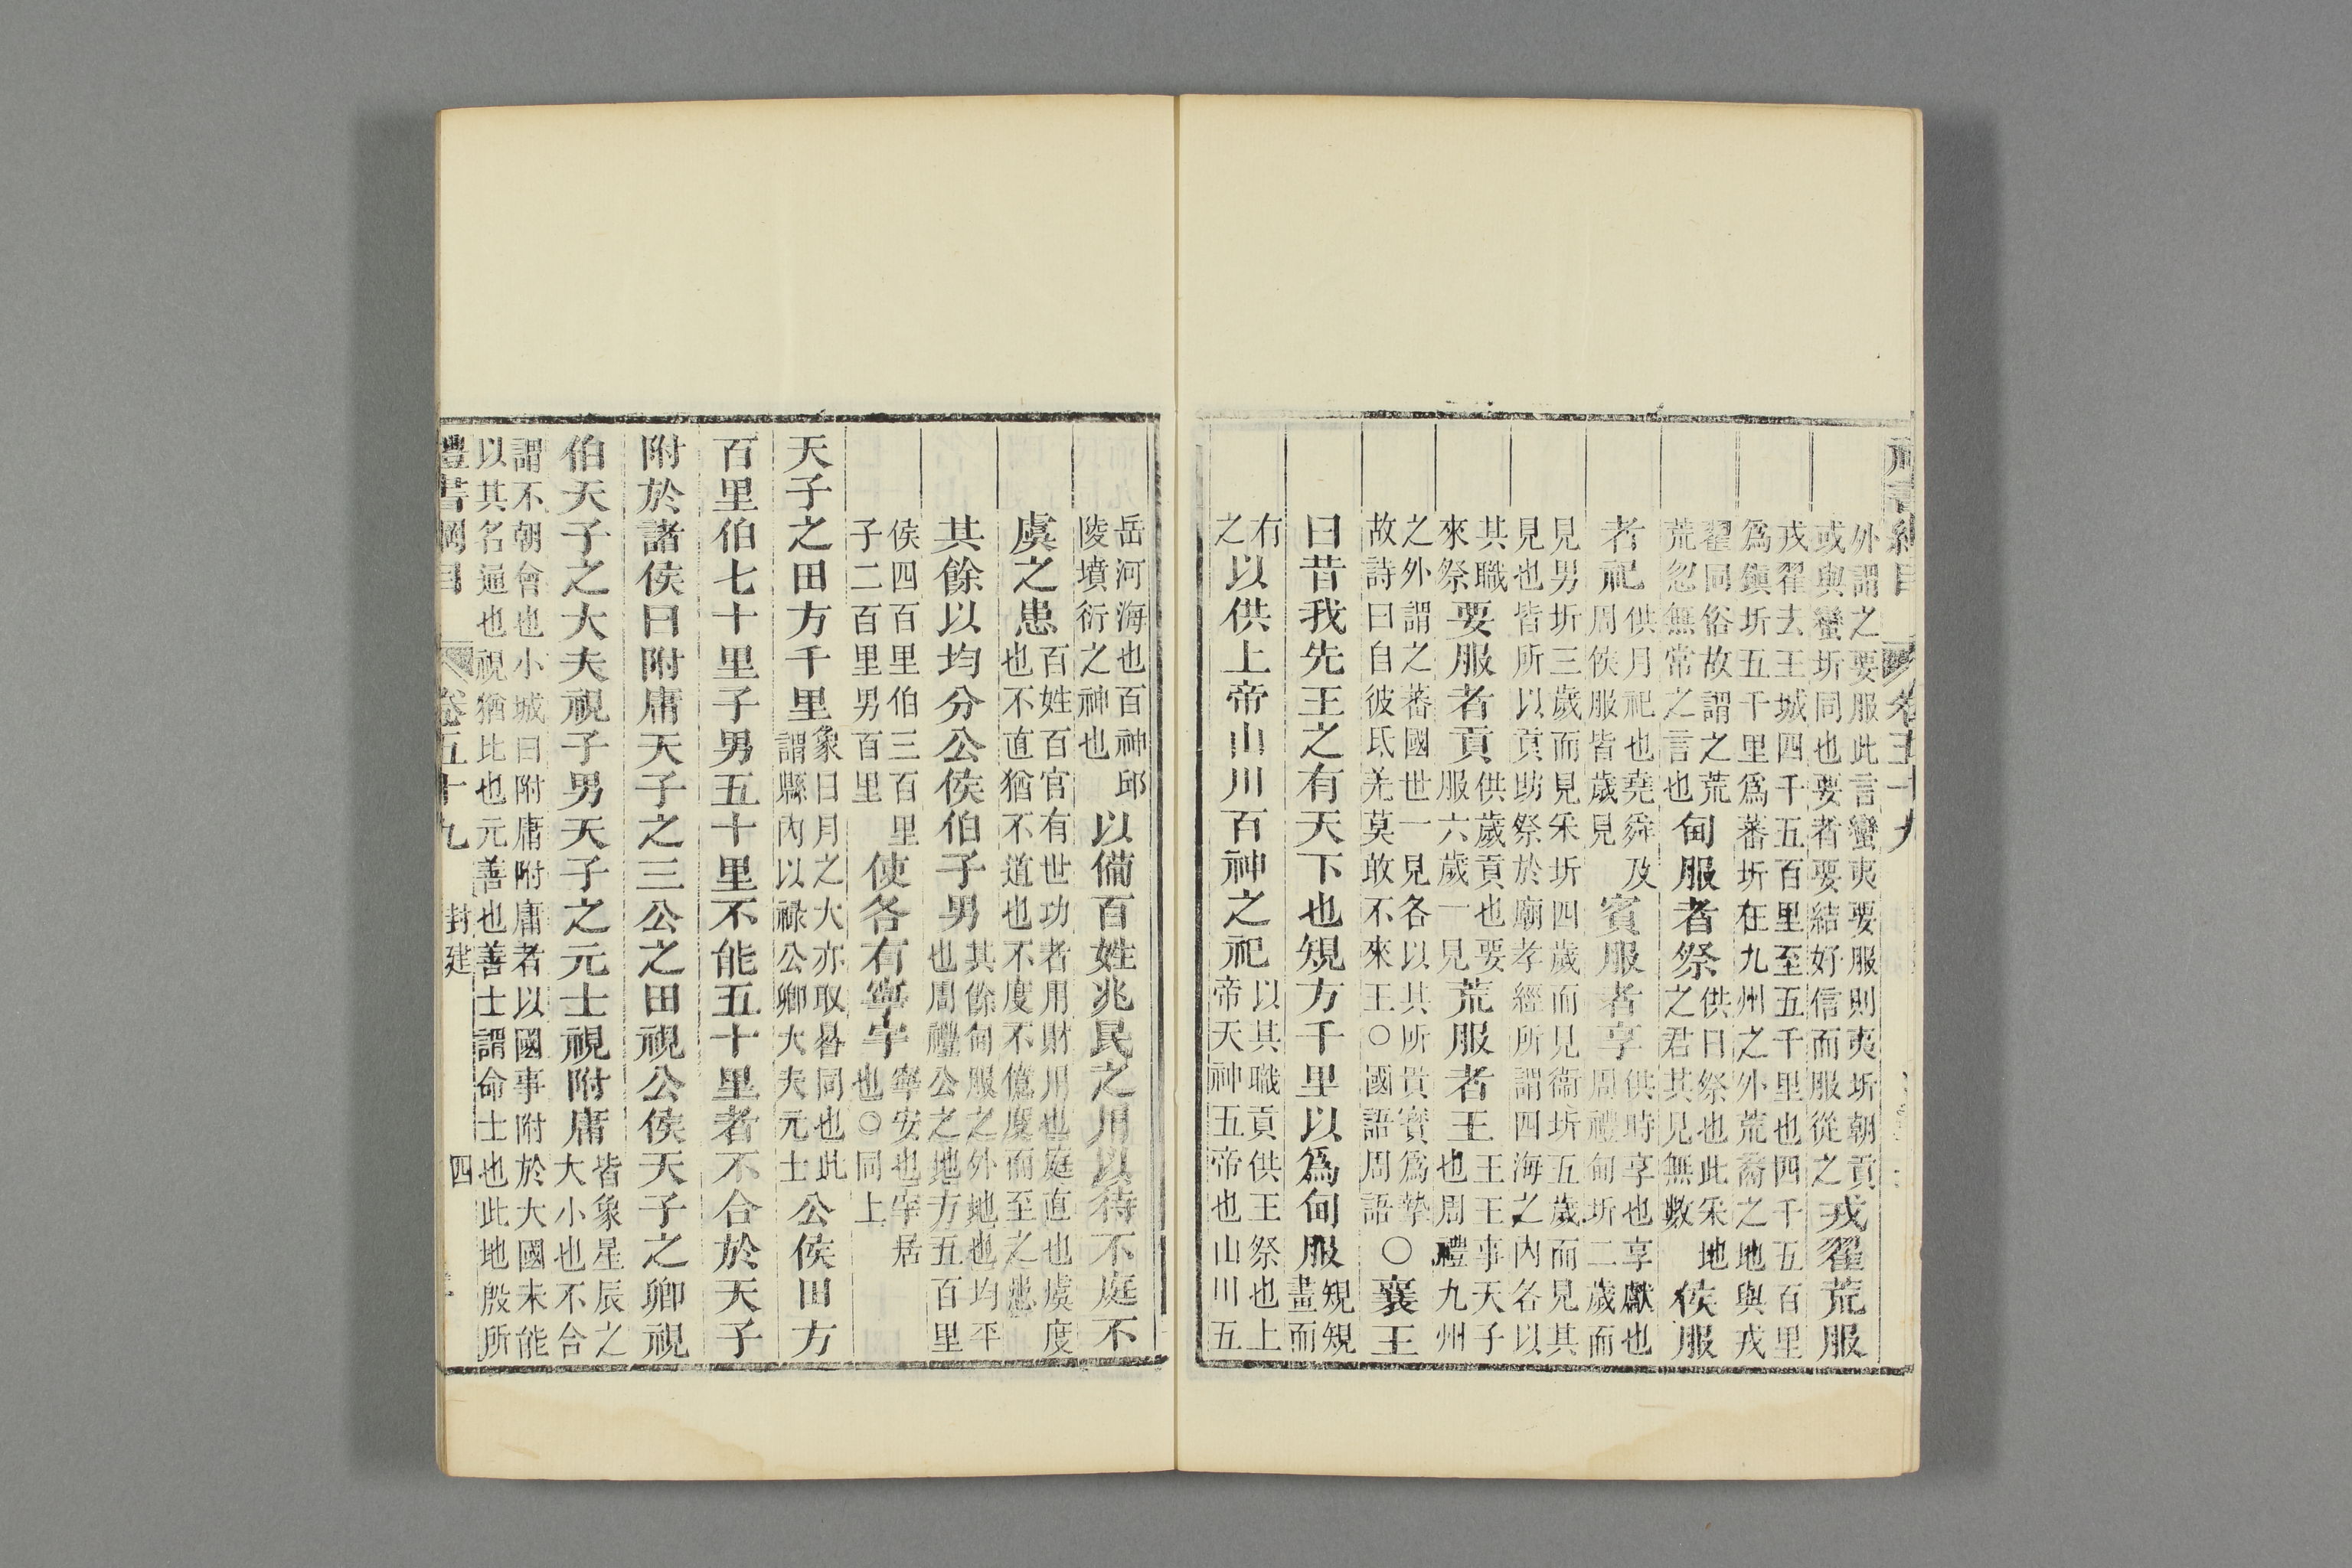 禮書綱目 卷五十九
外謂之要服此言蠻夷要服則夷圻朝貢
或與蠻圻同也要者要結好信而服從之
戎翟荒服
戎翟去王城四千五百里至五千里也四千五百里
爲鎭圻五千里爲蕃圻在九州之外荒裔之地與戎
翟同俗故謂之荒
荒忽無常之言也
甸服者祭
供日祭也此采地
之君其見無數
侯服
者祀
供月祀也堯舜及
周侯服皆歲見
賓服者享
供時享也享獻也
周禮甸圻二歲而
見男圻三歲而見采圻四歲而見衞圻五歲而見其
見也皆所以貢助祭於廟孝經所謂四海之內各以
其職
來祭
要服者貢
供歲貢也要
服六歲一見
荒服者王
王王事天子
也周禮九州
之外謂之蕃國世一見各以其所貴寶爲摯
故詩曰自彼氐羌莫敢不來王○國語周語
○襄王
曰昔我先王之有天下也規方千里以爲甸服
規規
畫而
有
之
以供上帝山川百神之祀
以其職貢供王祭也上
帝天神五帝也山川五
岳河海也百神邱
陵墳衍之神也
以備百姓兆民之用以待不庭不
虞之患
百姓百官有世功者用財用也庭直也虞度
也不直猶不道也不度不億度而至之患
其餘以均分公侯伯子男
其餘甸服之外地也均平
也周禮公之地方五百里
侯四百里伯三百里
子二百里男百里
使各有寧宇
寧安也宇居
也○同上
天子之田方千里
象日月之大亦取晷同也此
謂縣內以祿公卿大夫元士
公侯田方
百里伯七十里子男五十里不能五十里者不合於天子
附於諸侯曰附庸天子之三公之田視公侯天子之卿視
伯天子之大夫視子男天子之元士視附庸
皆象星辰之
大小也不合
謂不朝會也小城曰附庸附庸者以國事附於大國未能
以其名通也視猶比也元善也善士謂命士也此地殷所
禮書綱目 卷五十九 封建 四